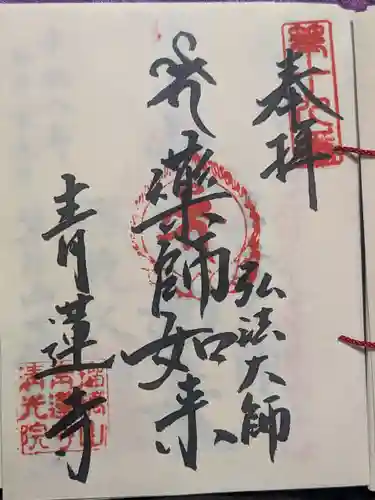 奉拝
弘法大師
薬師如来
青蓮寺
清光院